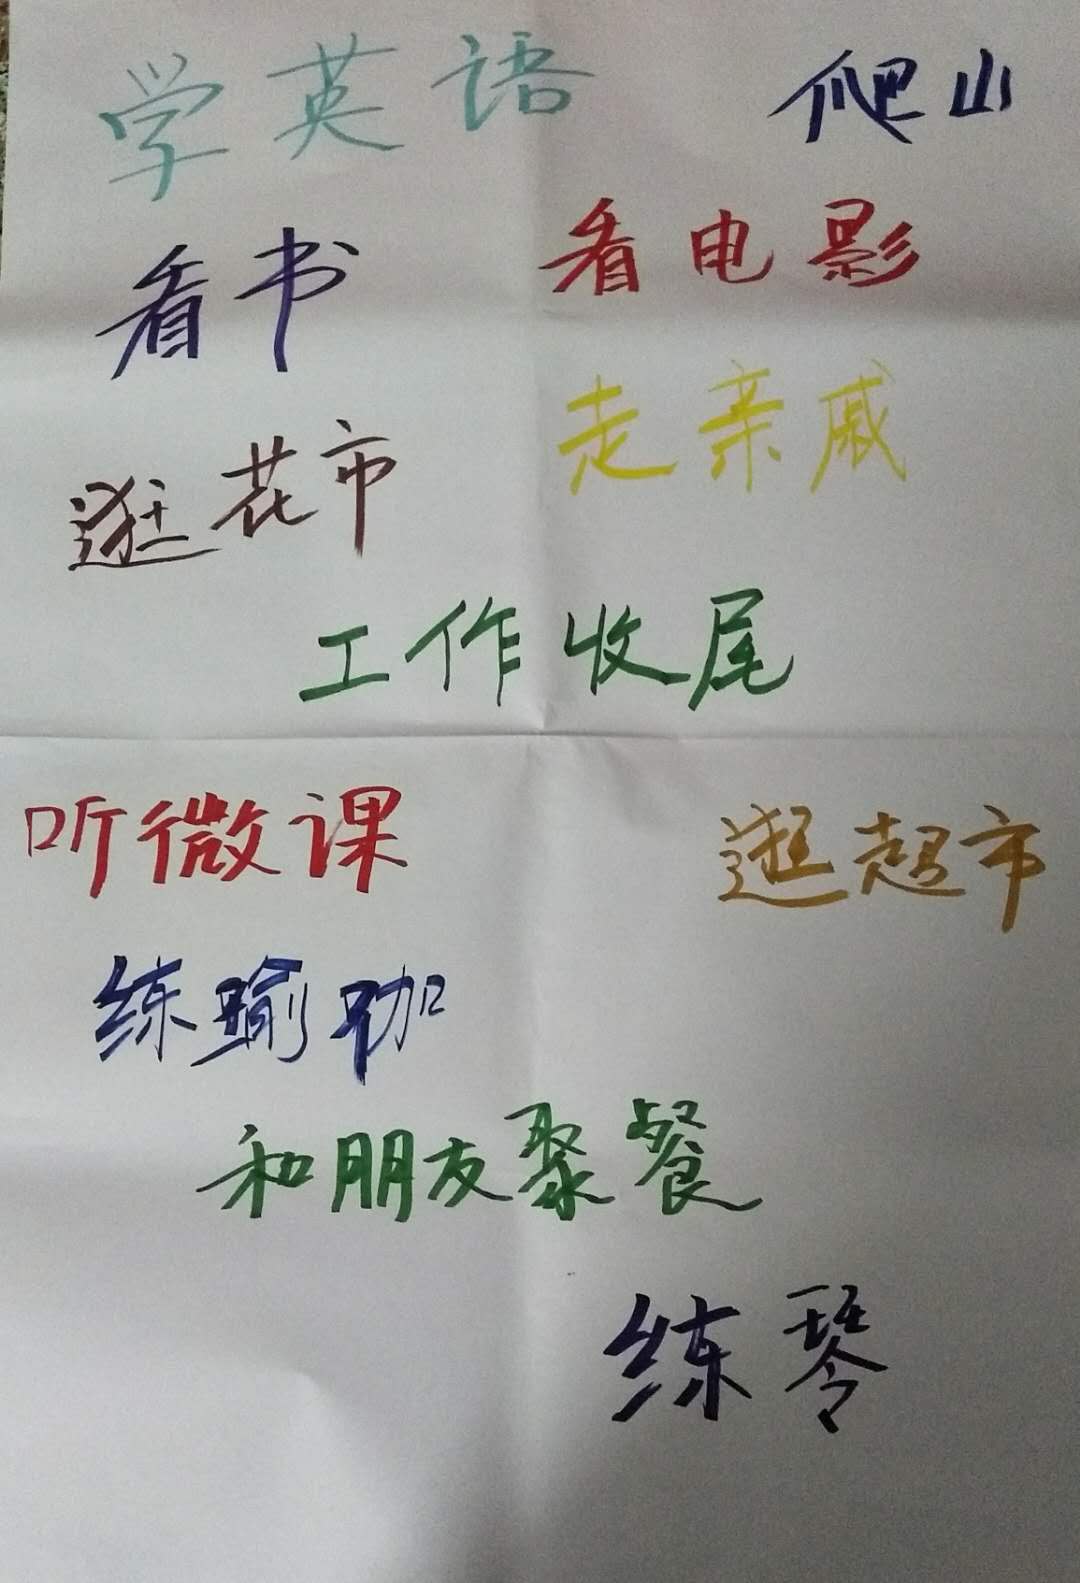 学英语 爬山
看书 看电影
逛花市 走亲戚
工作收尾
听微课 逛超市
练瑜珈
和朋友聚餐
练琴